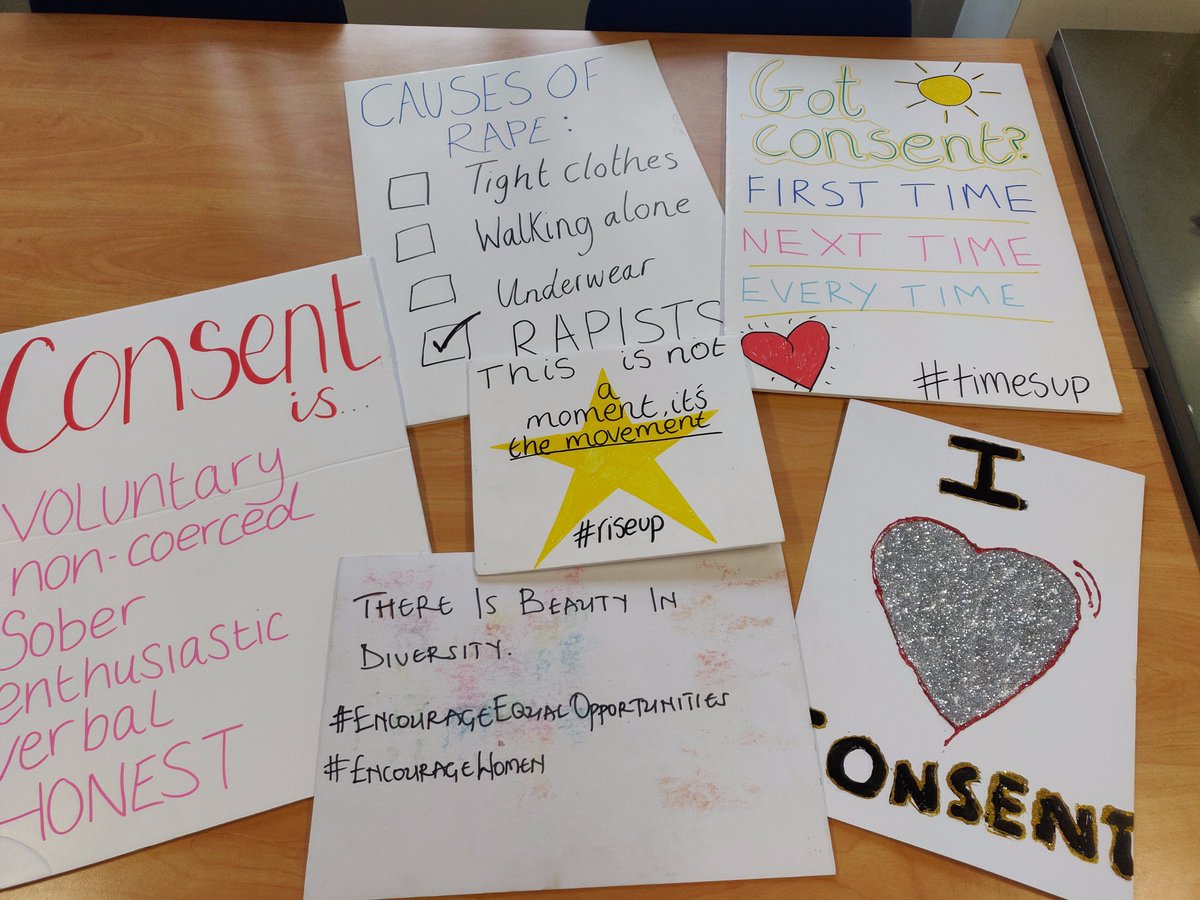 CAUSES OF
RAPE:
Tight clothes
Walking alone
Underwear
RAPISTS
Got
consent?
FIRST TIME
NEXT TIME
EVERY TIME
#timesup
Consent
is...
voluntary
non-coerced
Sober
enthusiastic
verbal
HONEST
This is not
a
moment, it's
the movement
#riseup
THERE IS BEAUTY IN
DIVERSITY.
#ENCOURAGEEQUALOPPORTUNITIES
#ENCOURAGEWOMEN
I
CONSENT